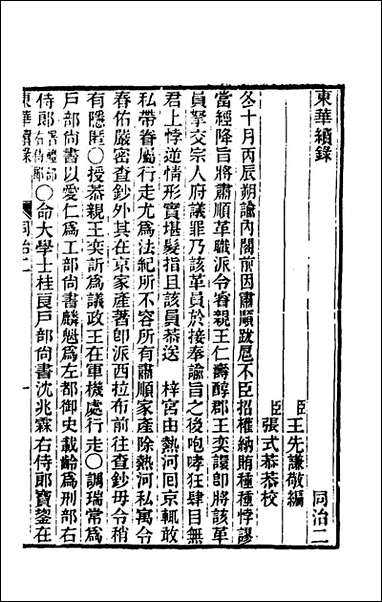 東華續錄
同治二
臣王先謙敬編
臣張式恭恭校
冬十月丙辰朔諭內閣前因肅順跋扈不臣招權納賄種種悖謬
當經降旨將肅順革職派令睿親王仁壽醇郡王奕譞即將該革
員拏交宗人府議罪乃該革員於接奉諭旨之後咆哮狂肆目無
君上悖逆情形實堪髮指且該員恭送 梓宮由熱河回京輒敢
私帶眷屬行走尤為法紀所不容所有肅順家產除熱河私寓令
春佑嚴密查鈔外其在京家產著即派西拉布前往查鈔毋令稍
有隱匿〇授恭親王奕訢為議政王在軍機處行走〇調瑞常為
戶部尚書以愛仁為工部尚書麟魁為左都御史載齡為刑部右
侍郎署禮部右侍郎〇命大學士桂良戶部尚書沈兆霖右侍郎寶鋆在
東華續錄 同治二 一